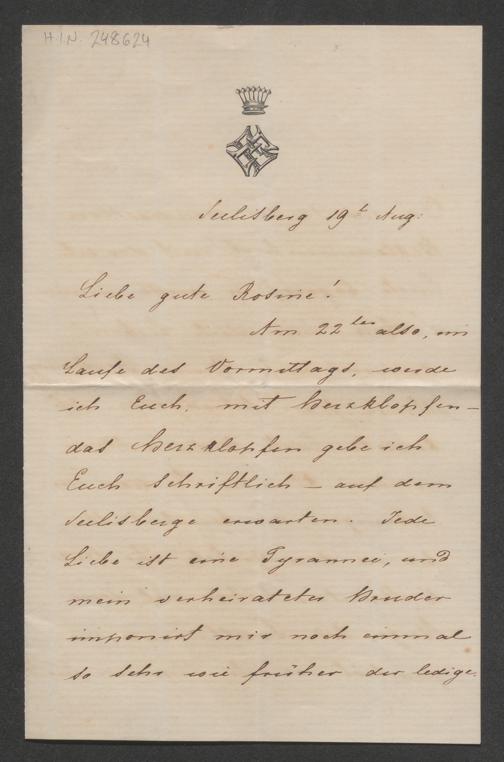 H.I.N. 248624
Seelisberg 19t Aug:
Liebe gute Rosine!
Am 22ten also, im
Laufe des Vormittags, werde
ich Euch, mit Herzklopfen –
das Herzklopfen gebe ich
Euch schriftlich – auf dem
Seelisberge erwarten. Jede
Liebe ist eine Tyrannei, und
mein verheirateter Bruder
imponirt mir noch einmal
so sehr wie früher der ledige.